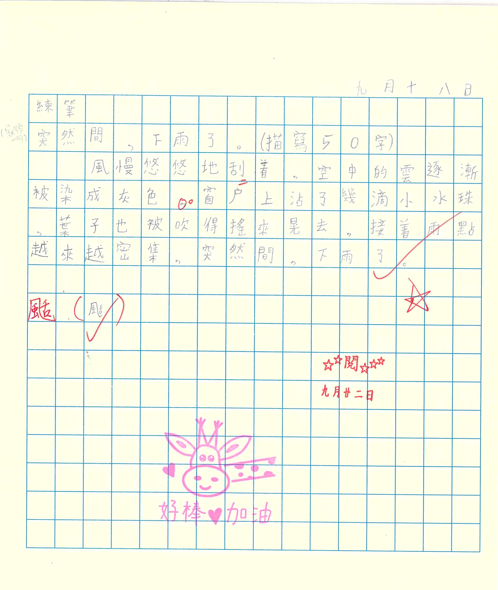 九月十八日
練筆
突然間,下雨了。(描寫50字)
風慢悠悠地刮着,空中的雲逐漸
被染成灰色。窗户上沾了幾滴小水珠
,葉子也被吹得搖來晃去,接着雨點
越來越密集,突然間,下雨了。
颳(颳)
閱
九月廿二日
好棒 加油